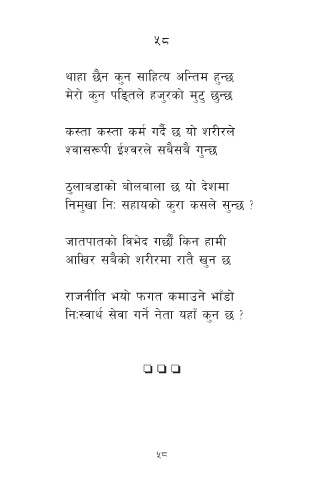 ५८
थाहा छैन कुन साहित्य अन्तिम हुन्छ
मेरो कुन पङ्तिले हजुरको मुटु छुन्छ
कस्ता कस्ता कर्म गर्दै छ यो शरीरले
श्वासरूपी ईश्वरले सबैसबै गुन्छ
ठुलाबडाको बोलबाला छ यो देशमा
निमुखा निः सहायको कुरा कसले सुन्छ ?
जातपातको विभेद गर्छौं किन हामी
आखिर सबैको शरीरमा रातै खुन छ
राजनीति भयो फगत कमाउने भाँडो
निःस्वार्थ सेवा गर्ने नेता यहाँ कुन छ ?
❑ ❑ ❑
५८